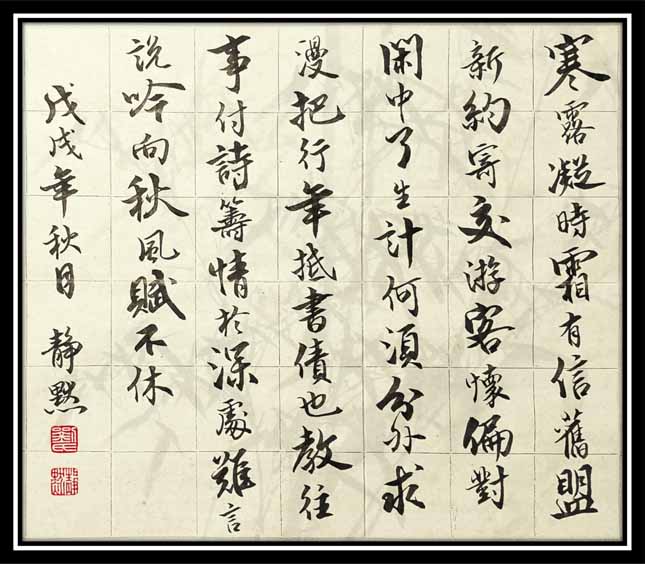 寒露凝時霜有信舊盟
新約寄交游客懷偏對
閑中了生計何須分外求
漫把行年抵書債也教往
事付詩籌情於深處難言
説吟向秋風賦不休
戊戌年秋日 靜默